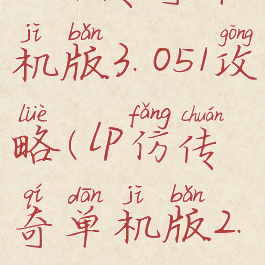 jī bǎn gōng
机版3.051攻
lüè fǎng chuán
略(lp仿传
qí dān jī bǎn
奇单机版2.